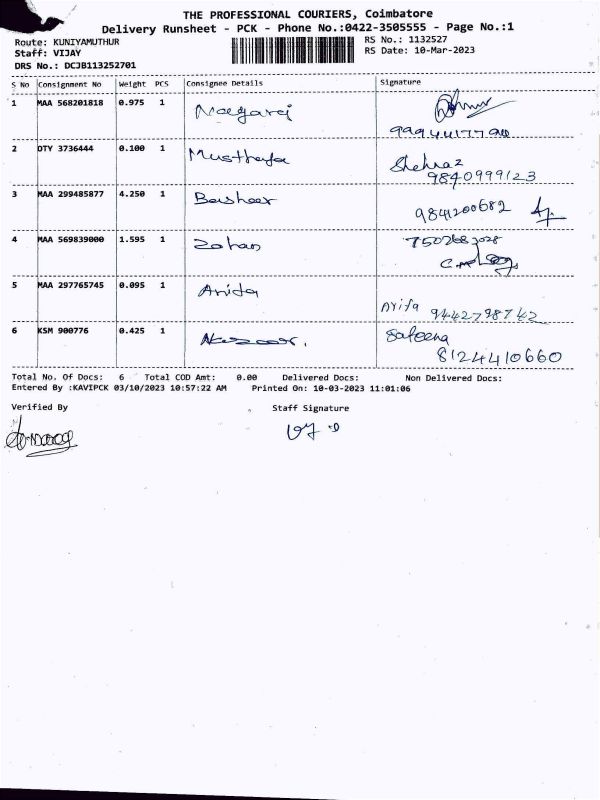 THE PROFESSIONAL COURIERS, Coimbatore
Delivery Runsheet - PCK - Phone No.:0422-3505555 - Page No.:1
Route: KUNIYAMUTHUR RS No.: 1132527
Staff: VIJAY RS Date: 10-Mar-2023
DRS No.: DCJB113252701
S No Consignment No Weight PCS Consignee Details Signature
1 MAA 568201818 0.975 1 Nagaraj
9994417790
2 OTY 3736444 0.100 1 Musthafa Shehnaz
9840999123
3 MAA 299485877 4.250 1 Basheer 9841200682
4 MAA 569839000 1.595 1 Zohan 7502683028
5 MAA 297765745 0.095 1 Arifa Arifa 9442798742
6 KSM 900776 0.425 1 Safeena
8124410660
Total No. Of Docs: 6 Total COD Amt: 0.00 Delivered Docs: Non Delivered Docs:
Entered By :KAVIPCK 03/10/2023 10:57:22 AM Printed On: 10-03-2023 11:01:06
Verified By Staff Signature